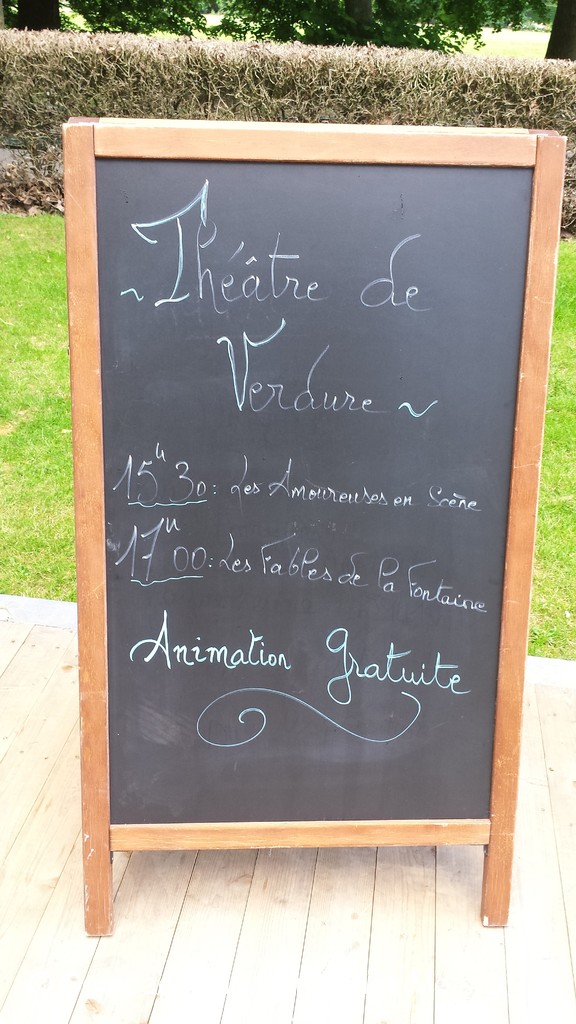 ~ Théâtre de
Verdure ~
15h30 : Les Amoureuses en Scène
17h00 : Les Fables de la Fontaine
Animation Gratuite